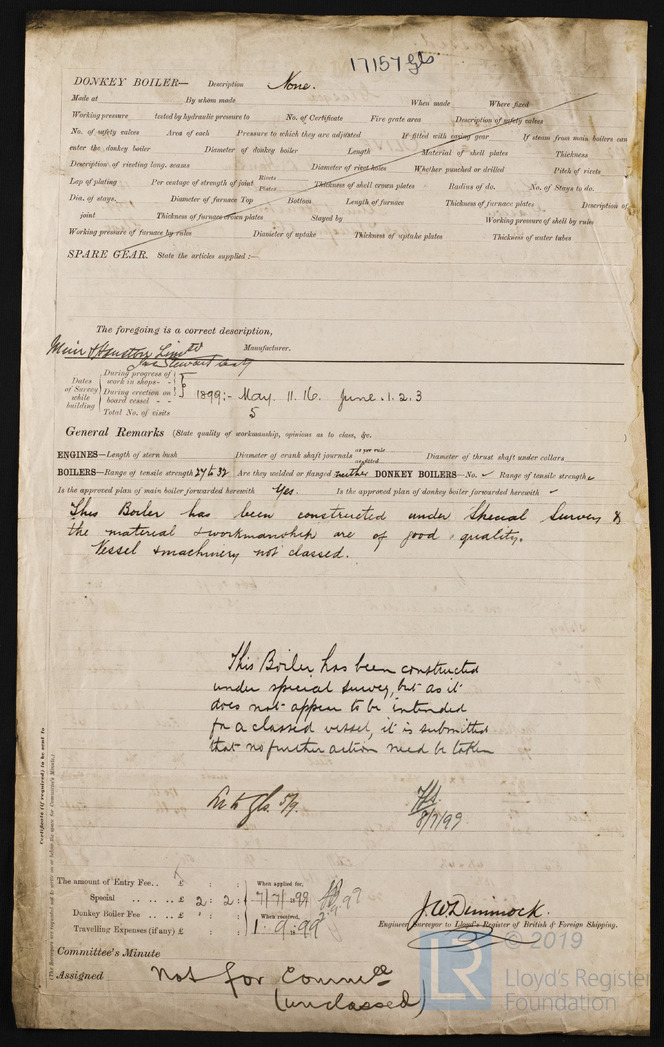 17157 Gls
DONKEY BOILER— Description None.
Made at By whom made When made Where fixed
Working pressure tested by hydraulic pressure to No. of Certificate Fire grate area Description of safety valves
No. of safety valves Area of each Pressure to which they are adjusted If fitted with easing gear If steam from main boilers can
enter the donkey boiler Diameter of donkey boiler Length Material of shell plates Thickness
Description of riveting long. seams Diameter of rivet holes Whether punched or drilled Pitch of rivets
Lap of plating Per centage of strength of joint Rivets Plates Thickness of shell crown plates Radius of do. No. of Stays to do.
Dia. of stays. Diameter of furnace Top Bottom Length of furnace Thickness of furnace plates Description of
joint Thickness of furnace crown plates Stayed by Working pressure of shell by rules
Working pressure of furnace by rules Diameter of uptake Thickness of uptake plates Thickness of water tubes
SPARE GEAR. State the articles supplied :—
The foregoing is a correct description,
Muir & Houston Limtd Manufacturer.
Stewart
Dates of Survey while building
During progress of work in shops - -
During erection on board vessel - -
Total No. of visits
1899:- May. 11. 16. June. 1. 2. 3
5
General Remarks (State quality of workmanship, opinions as to class, &c.
ENGINES—Length of stern bush Diameter of crank shaft journals as per rule as fitted Diameter of thrust shaft under collars
BOILERS—Range of tensile strength 27 to 32 Are they welded or flanged neither DONKEY BOILERS—No. ✓ Range of tensile strength ✓
Is the approved plan of main boiler forwarded herewith Yes. Is the approved plan of donkey boiler forwarded herewith ✓
This Boiler has been constructed under Special Survey &
the material & workmanship are of good quality.
Vessel & machinery not classed.
This Boiler has been constructed
under special survey, but as it
does not appear to be intended
for a classed vessel, it is submitted
that no further action need be taken
Gls. 5/9.
8/9/99
Certificate (if required) to be sent to
(The Surveyors are requested not to write on or below the space for Committee's Minute.)
The amount of Entry Fee. . £ : : When applied for,
Special . . . . . . £ 2 : 2 : 7/7/1899
Donkey Boiler Fee . . . £ : : When received,
Travelling Expenses (if any) £ : : 1. 9. 1899
J. W. Dimmock.
Engineer Surveyor to Lloyd's Register of British & Foreign Shipping.
Committee's Minute
Assigned Not for Committee
(unclassed)
LR © 2019
Lloyd's Register
Foundation